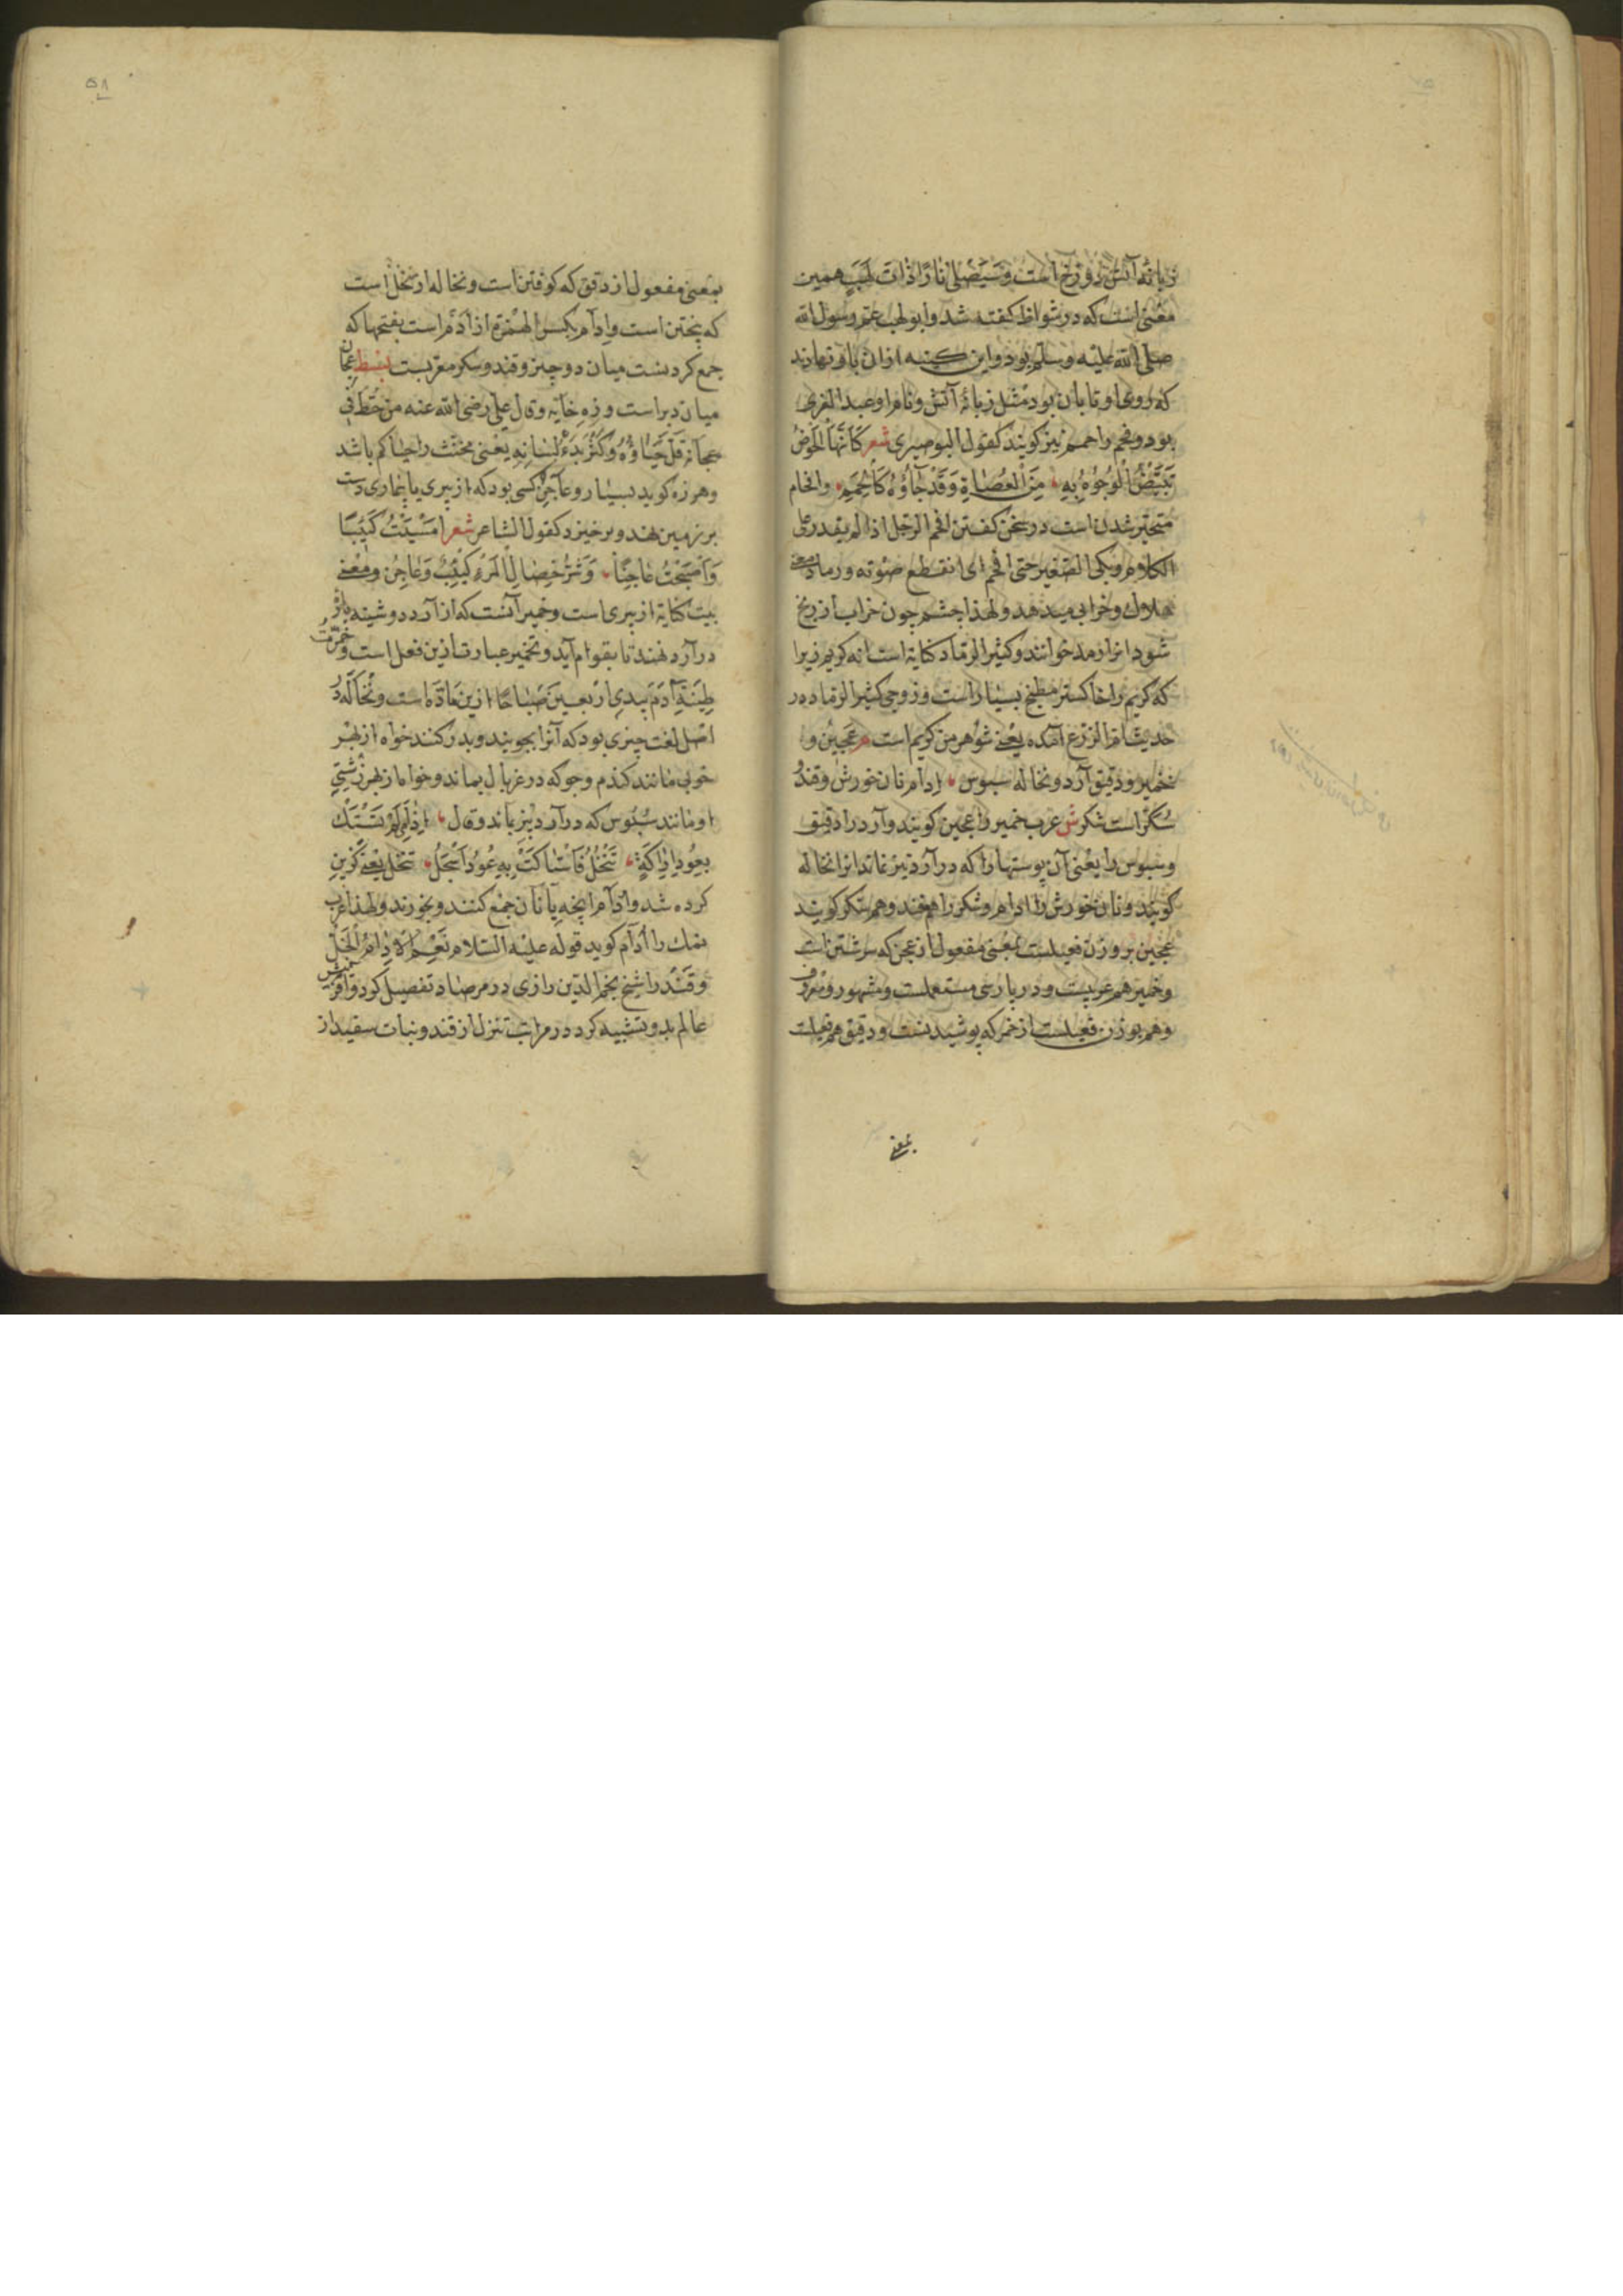 زبانهٔ آتش دوزخ است و سَیَصْلٰی نارًا ذاتَ لَهَبٍ همین
معنی است که در شواظ کفته شد و ابو لهب عم رسول الله
صلی الله علیه وسلم بود و این کنیه ازان باو نهادند
که روی او تابان بود مثل زبانهٔ آتش و نام او عبد العزی
بود و فحم را حمم نیز کویند کقول البوصیری شعر کَاَنَّهَا الْحَوْضُ
تَبْیَضُّ الْوُجُوْهُ بِهِ مِنَ الْعُصَاةِ وَقَدْ جَاؤُهُ کَالْحُمَمِ والحام
متحیر شدن است در سخن کفتن افحم الرجل اذا لم یقدر علی
الکلام و بکی الصغیر حتی افحم ای انقطع صوته و رماد معنی
هلاک و خرابی میدهد و لهذا چشم چون خراب از رنج
شود انرا رمد خوانند و کثیر الرماد کنایة است از کریم زیرا
که کریم را خاکستر مطبخ بسیار است و زوجی کثیر الرماد در
حدیث ام الزرع آمده یعنی شوهر من کریم است م عَجِیْنُ و
خمیر و دقیق آرد و نخاله سبوس اِدام نان خورش و قندُ
سُکَّر است شکر ش عرب خمیر را عجین کویند و آرد را دقیق
و سبوس را یعنی آن پوستها را که در آردبیز بماند انرا نخاله
کویند و نان خورش را ادام و شکر را هم قند و هم سکر کویند
عجین بر وزن فعیلست بمعنی مفعول از عجن که سرشتن است
و خمیر هم عربیست و در پارسی مستعملست و مشهور و معروف
و هم بوزن فعیلست از خمر که پوشیدنست و دقیق هم فعیلست
بمعنی
۵۸
بمعنی مفعول از دق که کوفتن است و نخاله از نخل است
که پختن است و اِدام بکسر الهمزة از اَدَم است بفتحها که
جمع کردنست میان دو چیز و قند و سکر معربست بسط عِجَان
میان دبر است و زهِ خایه و قال علی رضی الله عنه من حُطّ فی
عجانه قَلَّ حَیَاؤُهُ وَکَثُرَ بَذَءُ لِسَانِهِ یعنی مخنث را حیا کم باشد
و هرزه کوید بسیار و عَاجِنْ کسی بود که از پیری یا بیماری دست
بر زمین نهد و برخیزد کقول الشاعر شعر اَمْسَیْتُ کَئِیْبًا
وَاَصْبَحْتُ عَاجِنًا وَشَرُّ خِصَالِ الْمَرْءِ کَئِیْبٌ وَعَاجِنُ و معنی
بیت کنایة از پیری است و خمیر آنست که از آرد دوشینه باز
در آرد نهند تا بقوام آید و تخمیر عبارت ازین فعل است و خَمَّرْتُ
طِیْنَةَ آدَمَ بِیَدِیْ اَرْبَعِیْنَ صَبَاحًا ازین مَادّه است و نُخَاله دَر
اصل لغت چیزی بود که آنرا بجویند و بدر کنند خواه از بهر
خوبی مانند کندم و جو که در غربال بماند و خواه از بهر زشتی
او مانند سُبُوس که در آردبیز بماند و قال اِذَا هِیَ لَمْ تَسْتَكْ
بِعُوْدِ اَرَاکَةٍ تُنُخِّلَ فَاسْتَاکَتْ بِهِ عُوْدُ اَسْجَلُ تنخل یعنی کزین
کرده شد و اِدام انچه با نان جمع کنند و بخورند و لهذا عرب
نمك را اِدام کوید قوله علیه السلام نَعْمَ الْاِدَامُ الْخَلُّ
و قَنْد را شیخ نجم الدین رازی در مرصاد تفصیل کرد و آفرینش
عالم بدو تشبیه کرد در مراتب تنزل از قند و نبات سفید از